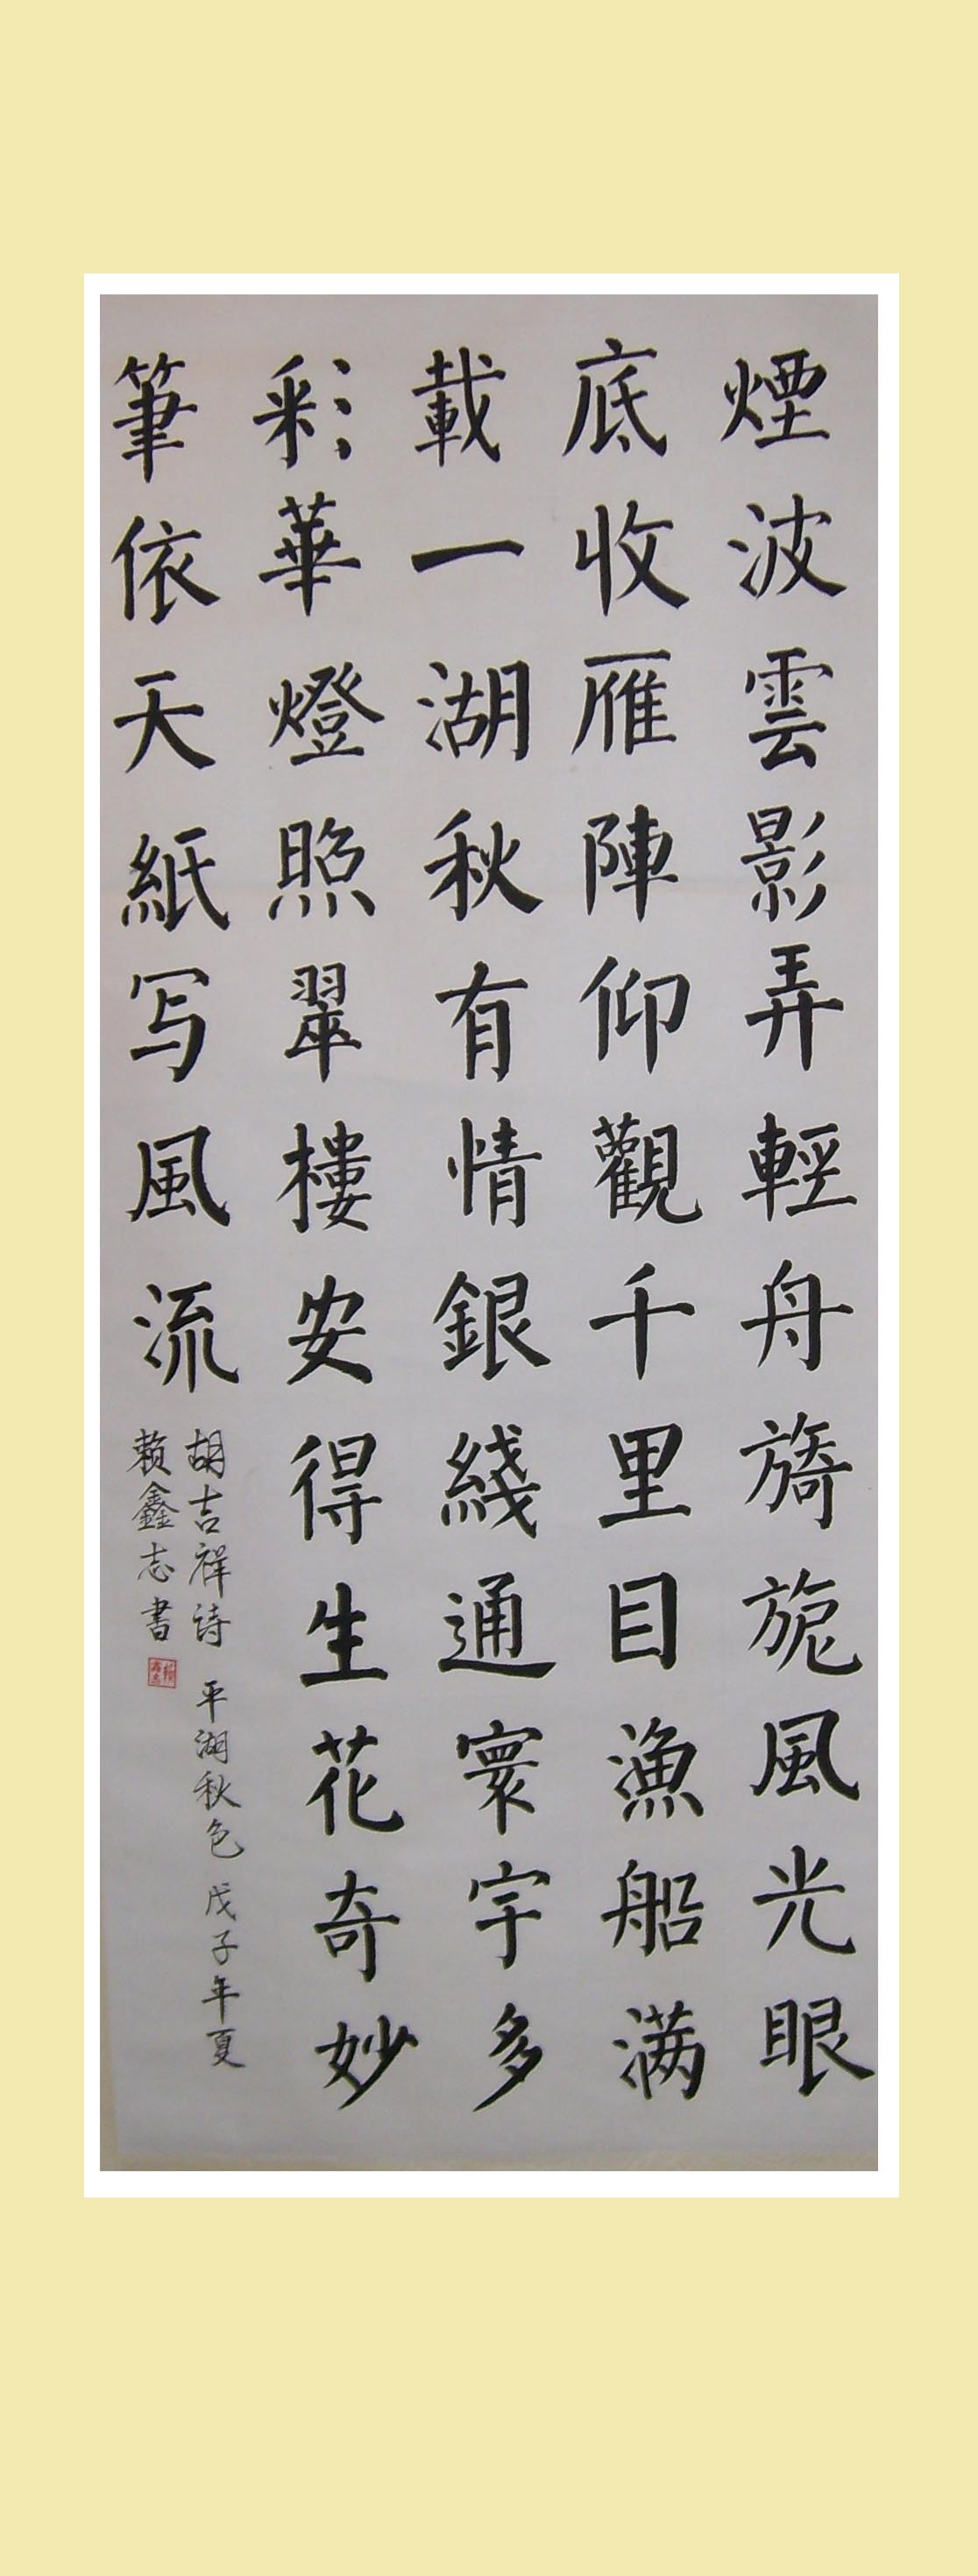 煙波雲影弄輕舟旖旎風光眼
底收雁陣仰觀千里目漁船满
載一湖秋有情銀綫通寰宇多
彩華燈照翠樓安得生花奇妙
筆依天紙写風流
胡吉祥诗 平湖秋色 戊子年夏
赖鑫志書